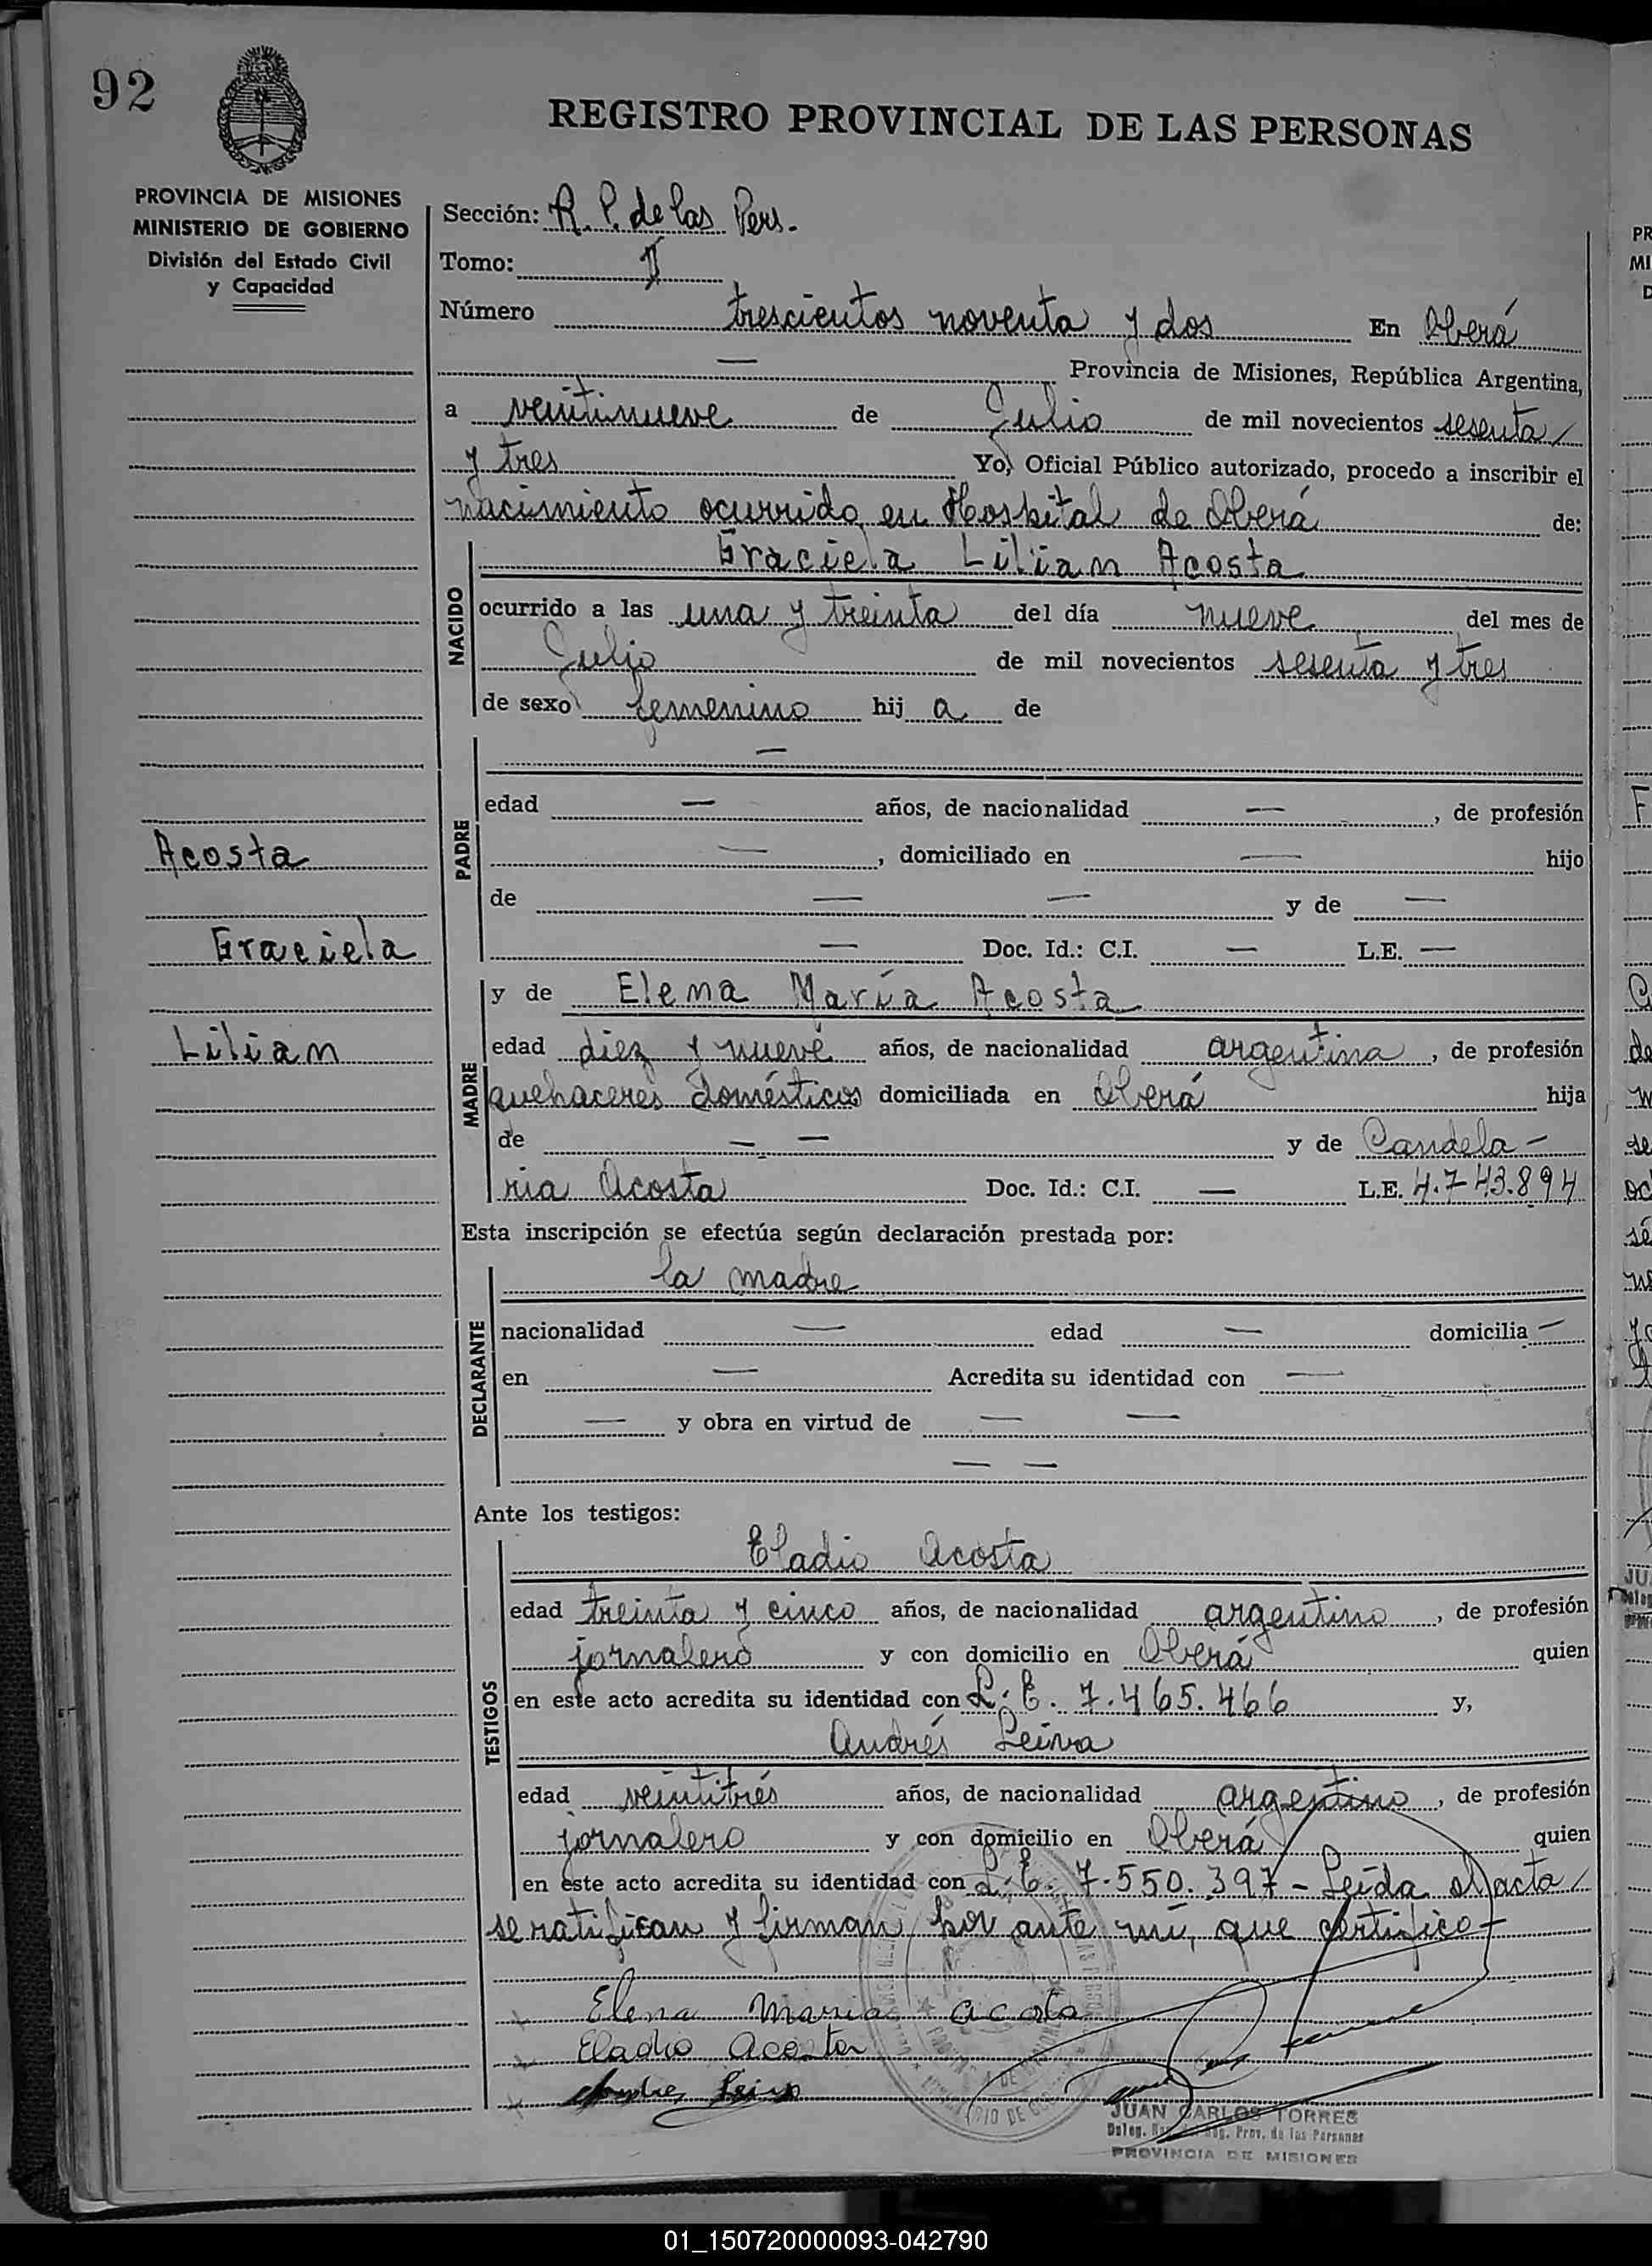 92
REGISTRO PROVINCIAL DE LAS PERSONAS
PROVINCIA DE MISIONES
MINISTERIO DE GOBIERNO
División del Estado Civil
y Capacidad
Sección: R. P. de las Pers.
Tomo: II
Número trescientos noventa y dos En Oberá
— Provincia de Misiones, República Argentina,
a veintinueve de Julio de mil novecientos sesenta
y tres Yo, Oficial Público autorizado, procedo a inscribir el
nacimiento ocurrido en Hospital de Oberá de:
NACIDO
Graciela Lilian Acosta
ocurrido a las una y treinta del día nueve del mes de
Julio de mil novecientos sesenta y tres
de sexo femenino hij a de
PADRE
—
edad — años, de nacionalidad — , de profesión
— , domiciliado en — hijo
de — — y de —
— Doc. Id.: C.I. — L.E. —
Acosta
Graciela
Lilian
MADRE
y de Elena María Acosta
edad diez y nueve años, de nacionalidad argentina , de profesión
quehaceres domésticos domiciliada en Oberá hija
de — — y de Candela-
ria Acosta Doc. Id.: C.I. — L.E. 4.743.894
Esta inscripción se efectúa según declaración prestada por:
DECLARANTE
la madre
nacionalidad — edad — domicilia —
en — Acredita su identidad con —
— y obra en virtud de — —
— —
Ante los testigos:
TESTIGOS
Eladio Acosta
edad treinta y cinco años, de nacionalidad argentino , de profesión
jornalero y con domicilio en Oberá quien
en este acto acredita su identidad con L. E. 7.465.466 y,
Andrés Leiva
edad veintitrés años, de nacionalidad argentino , de profesión
jornalero y con domicilio en Oberá quien
en este acto acredita su identidad con L. E. 7.550.397 - Leída el acta
se ratifican y firman por ante mí, que certifico -
Elena Maria Acosta
Eladio Acosta
Andres Leiva
JUAN CARLOS TORRES
Prov. de las Personas
PROVINCIA DE MISIONES
01_150720000093-042790